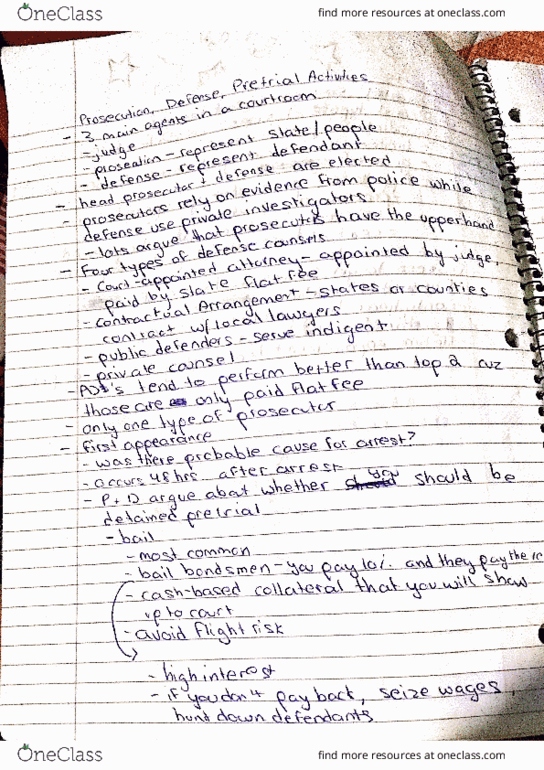 OneClass
find more resources at oneclass.com
Prosecution, Defense, Pretrial Activities
- 3 main agents in a courtroom
- judge
- prosection - represent state/people
- defense - represent defendant
- head prosecutor & defense are elected
- prosecutors rely on evidence from police while
defense use private investigators
- lots argue that prosecutrs have the upperhand
- Four types of defense counsels
- court-appointed attorney - appointed by judge,
paid by state flat fee
- contractual Arrangement - states or counties
contract w/ local lawyers
- public defenders - serve indigent
- private counsel
- PD's tend to perform better than top 2 cuz
those are only paid flat fee
- only one type of prosecutor
- first appearance
- was there probable cause for arrest?
- occurs 48 hrs after arrest
- P + D argue abat whether you should be
detained pretrial
- bail
- most common
- bail bondsmen - you pay 10%. and they pay the
- cash-based collateral that you will show
up to court
- avoid flight risk
- high interest
- if you don't pay back, seize wages,
hunt down defendants
OneClass
find more resources at oneclass.com